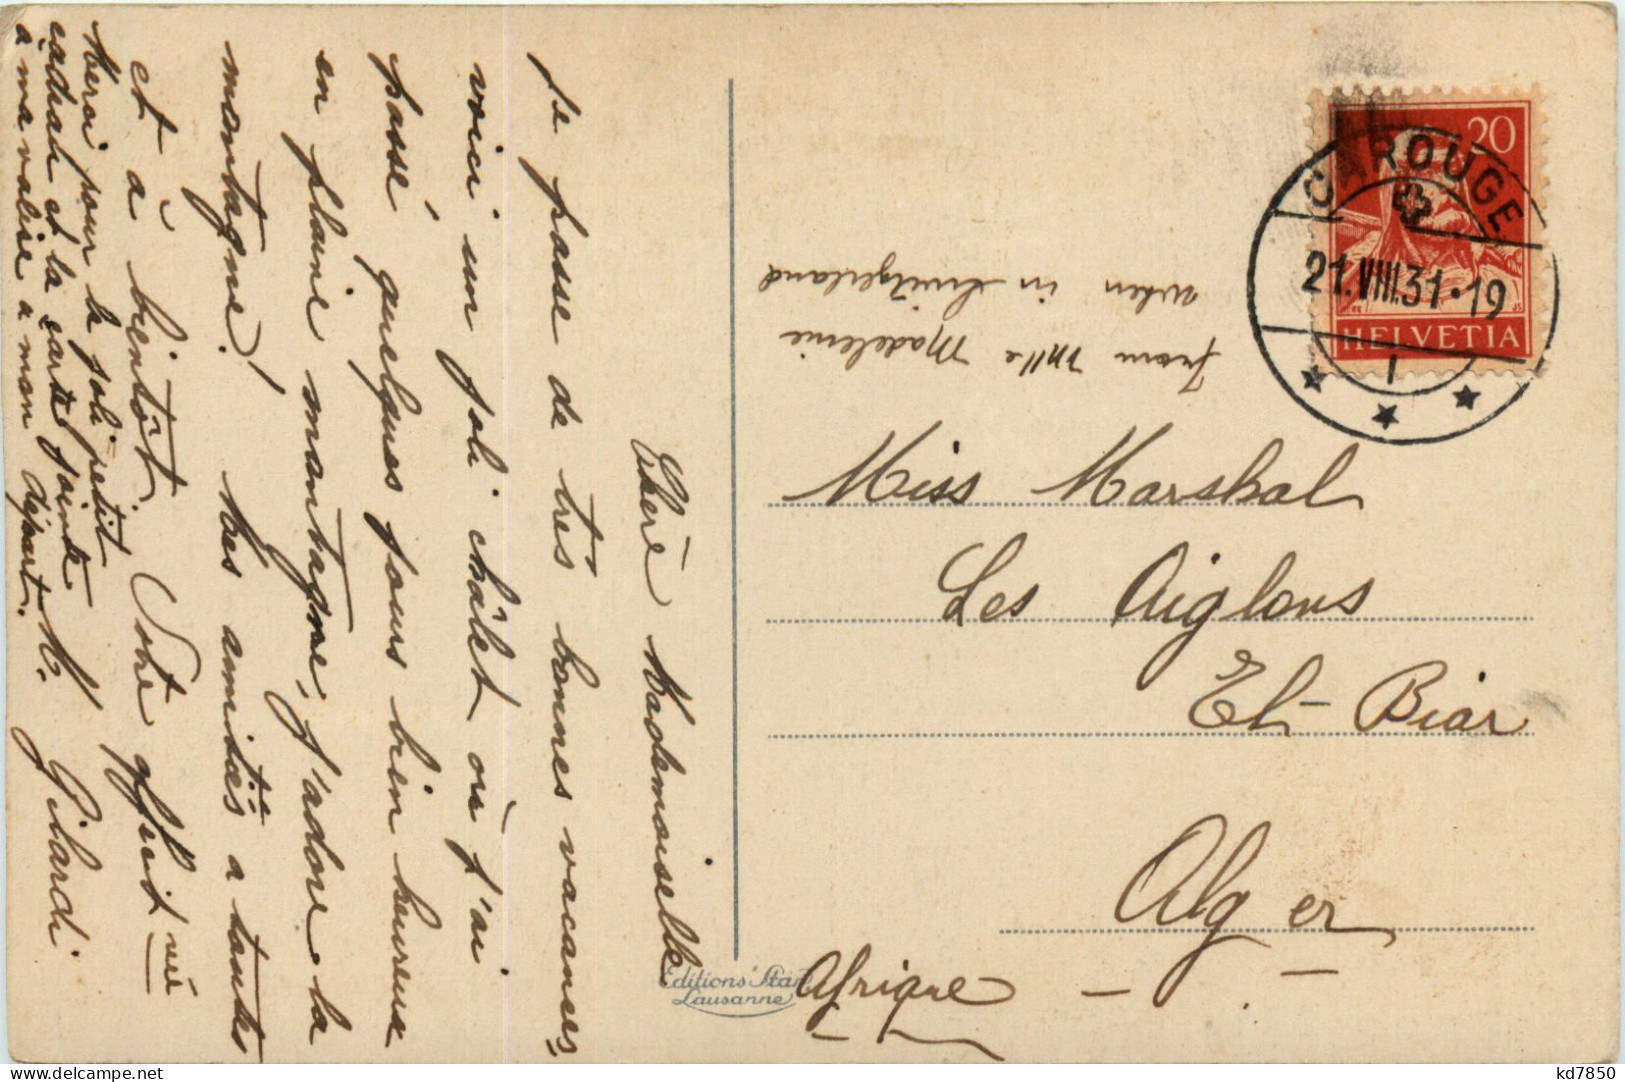 Chère Mademoiselle
je passe de très bonnes vacances,
voici un joli châlet où j'ai
passé quelques jours bien heureux
en pleine montagne, j'adore la
montagne! Mes amitiés a toutes
et à bientôt. Votre
M. Gilardi
Merci pour le joli petit
cadeau et la carte jointe
a ma valise a mon départ.
from Mlle Madeleine
when in Switzerland
Miss Marshal
Les Aiglons
El-Biar
Alger
Afrique
20
HELVETIA
CAROUGE
21.VIII.31·19
Editions Star
Lausanne
kd7850